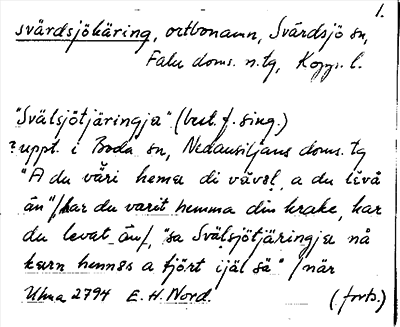 1.
svärdsjökäring, ortbonamn, Svärdsjö sn,
Falu doms. n. tg, Kopps. l.
"Svälsjötjäringja" (best. f. sing.)
?uppt. i Boda sn, Nedansiljans doms. tg
"A du våri hema di vävsl, a du livå
än" /har du varit hemma din krake, har
du levat än/, "sa Svälsjötjäringja nå
kärn hennes a fjört ijäl sä" /när
Uma 2794 E. H. Nord. (forts.)